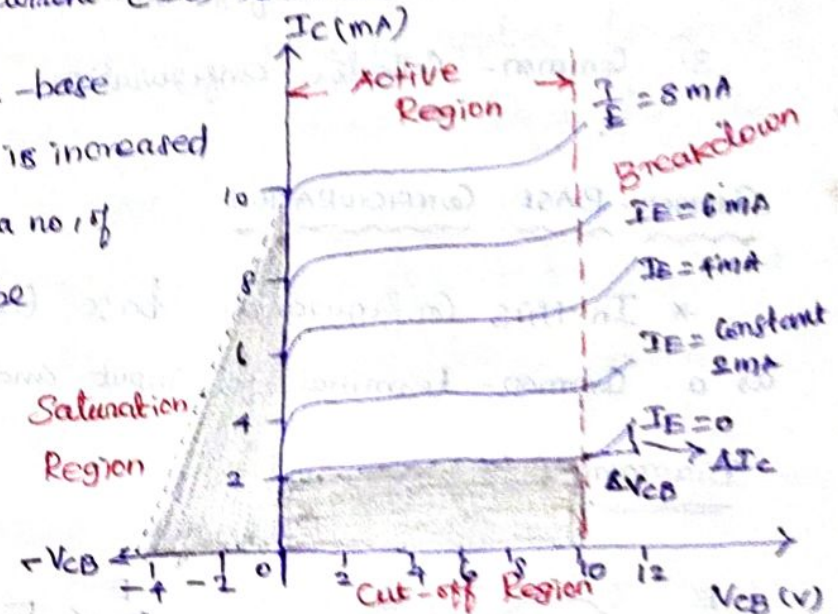 Ic (mA)
-base
is increased
a no, of
Active
Region
IE = 8mA
Breakdown
IE = 6mA
IE = 4mA
IE = constant
2mA
IE = 0
ΔIc
ΔVCB
Saturation
Region
10
8
6
4
2
-VCB
-4 -2 0 2 4 6 8 10 12
Cut-off Region
VCB (V)